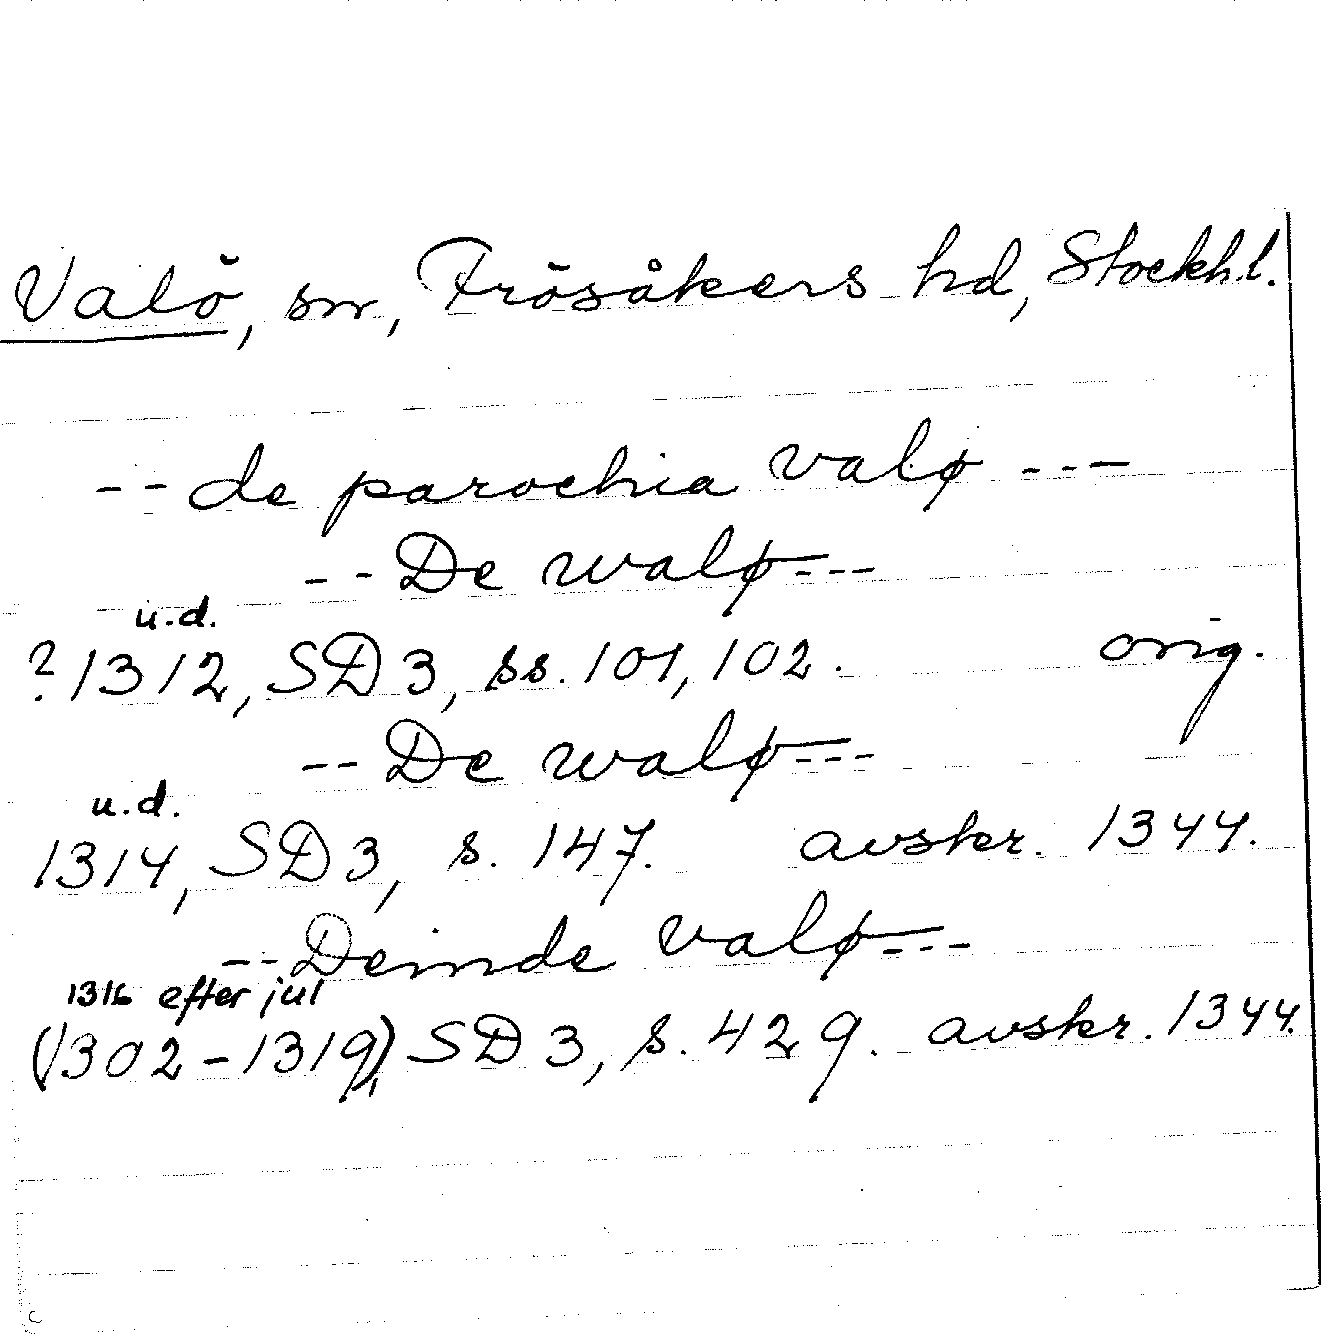 Valö, sn, Frösåkers hd, Stockh.l.
-- de parochia valø ---
-- De walø ---
u.d.
? 1312, SD 3, ss. 101, 102. orig.
-- De walø ---
u.d.
1314, SD 3, s. 147. avskr. 1344.
-- Deinde valø ---
1316 efter jul
(1302-1319), SD 3, s. 429. avskr. 1344.